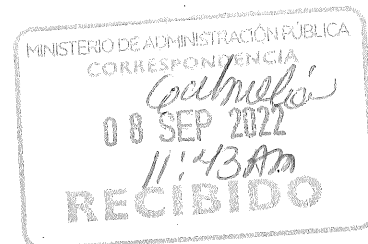 MINISTERIO DE ADMINISTRACIÓN PÚBLICA
CORRESPONDENCIA
08 SEP 2022
11:43 Am
RECIBIDO